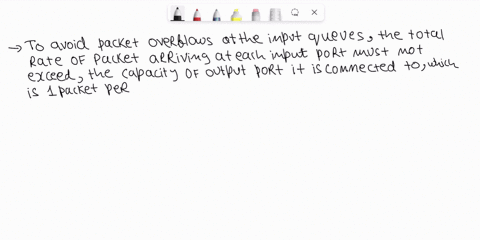 → To avoid packet overflows at the input queues, the total
Rate of Packet arriving at each input port must not
exceed, the capacity of output port it is connected to, which
is 1 packet per